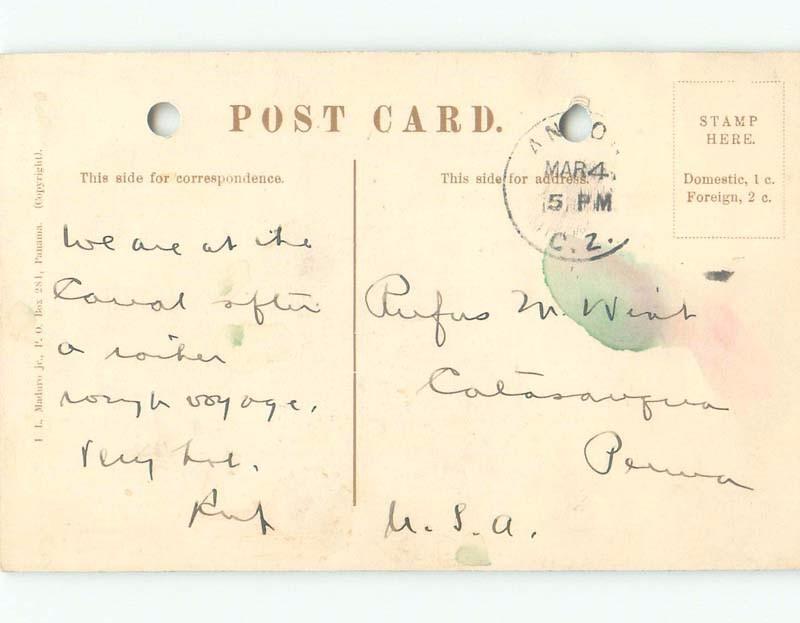 POST CARD.
This side for correspondence.
This side for address.
STAMP
HERE.
Domestic, 1 c.
Foreign, 2 c.
MAR 4
5 PM
C. Z.
I. L. Maduro jr., P. O. Box 281, Panama. (Copyright).
We are at the
Canal after
a rather
rough voyage.
Very hot.
Rufus M. Wint
Catasauqua
Penna
U. S. A.